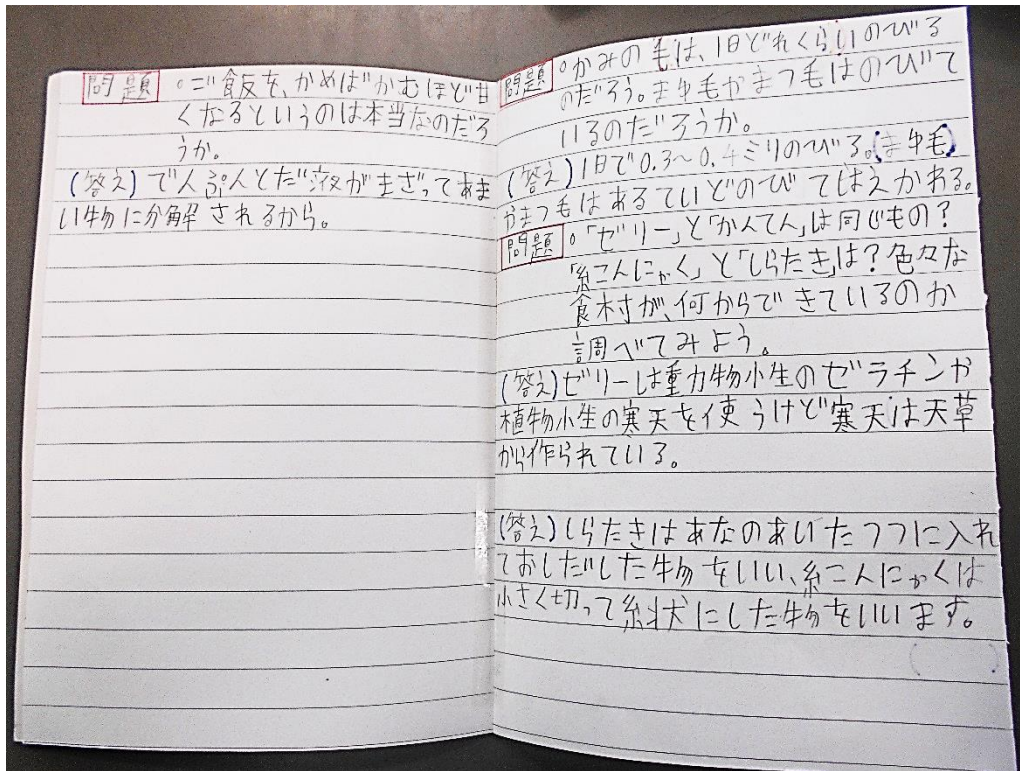 問題 ◦ご飯を、かめばかむほど甘
くなるというのは本当なのだろ
うか。
(答え)でんぷんとだ液がまざってあま
い物に分解されるから。
問題 ◦かみの毛は、1日どれくらいのびる
のだろう。まゆ毛やまつ毛はのびて
いるのだろうか。
(答え)1日で0.3〜0.4ミリのびる。(まゆ毛)
やまつ毛はあるていどのびてはえかわる。
問題 ◦「ゼリー」と「かんてん」は同じもの?
「糸こんにゃく」と「しらたき」は?色々な
食材が、何からできているのか
調べてみよう。
(答え)ゼリーは動物性のゼラチンか
植物性の寒天を使うけど寒天は天草
から作られている。
(答え)しらたきはあなのあいたつつに入れ
ておしだした物をいい、糸こんにゃくは
小さく切って糸状にした物をいいます。